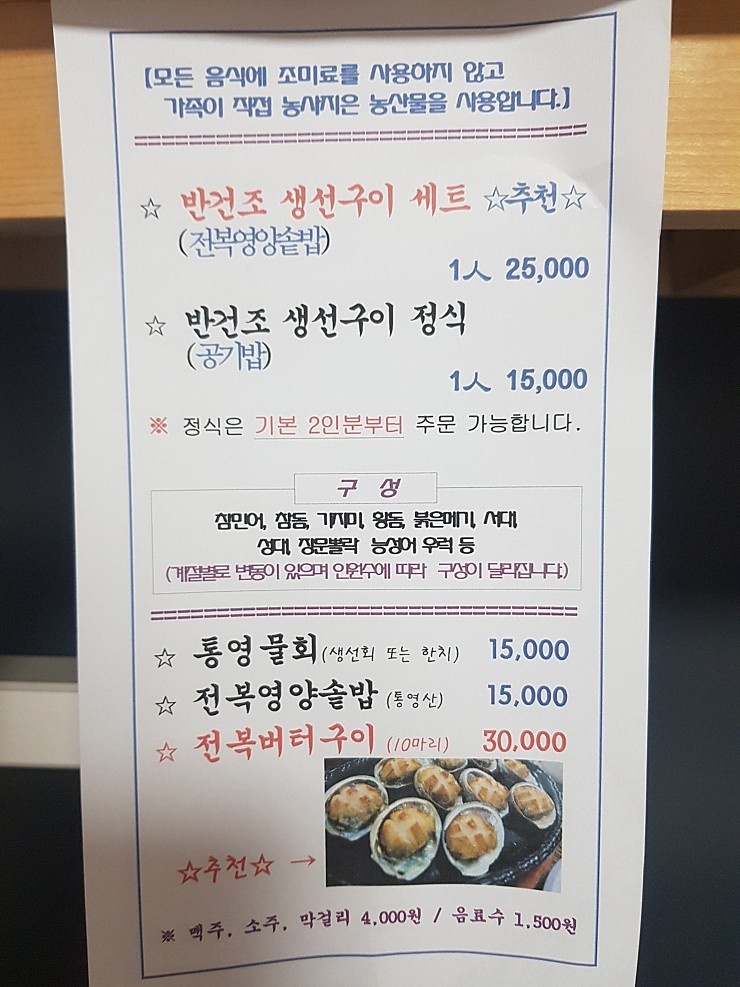 [모든 음식에 조미료를 사용하지 않고
가족이 직접 농사지은 농산물을 사용합니다.]
☆ 반건조 생선구이 세트 ☆추천☆
(전복영양솥밥)
1人 25,000
☆ 반건조 생선구이 정식
(공기밥)
1人 15,000
※ 정식은 기본 2인분부터 주문 가능합니다.
구 성
참민어, 참돔, 가자미, 황돔, 붉은메기, 서대,
성대, 장문볼락 능성어 우럭 등
(계절별로 변동이 있으며 인원수에 따라 구성이 달라집니다.)
☆ 통영물회 (생선회 또는 한치) 15,000
☆ 전복영양솥밥 (통영산) 15,000
☆ 전복버터구이 (10마리) 30,000
☆추천☆ →
※ 맥주, 소주, 막걸리 4,000원 / 음료수 1,500원